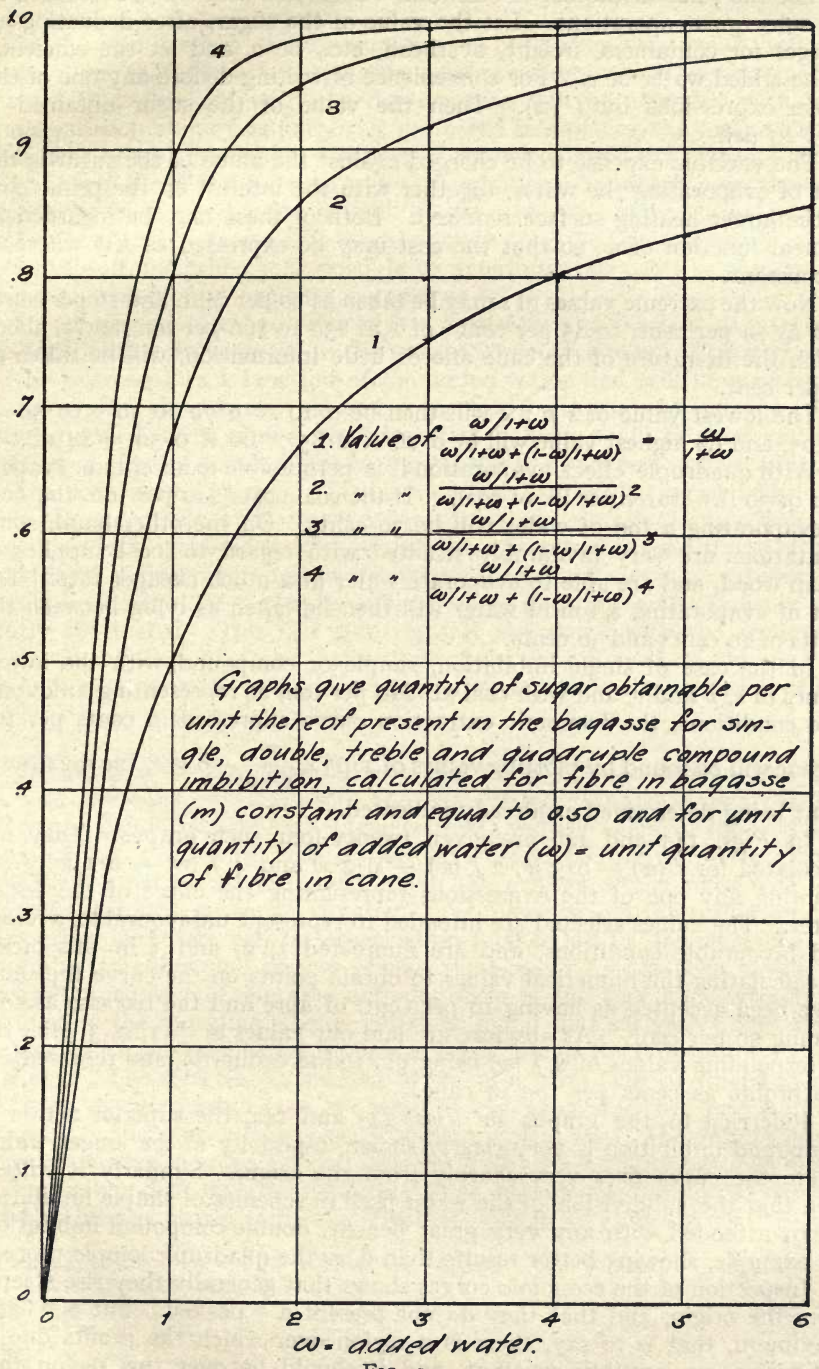 1.0
.9
.8
.7
.6
.5
.4
.3
.2
.1
0
4
3
2
1
1. Value of (ω/1+ω) / (ω/1+ω + (1-ω/1+ω)) = ω / (1+ω)
2. " " (ω/1+ω) / (ω/1+ω + (1-ω/1+ω)²)
3 " " (ω/1+ω) / (ω/1+ω + (1-ω/1+ω)³)
4 " " (ω/1+ω) / (ω/1+ω + (1-ω/1+ω)⁴)
Graphs give quantity of sugar obtainable per
unit thereof present in the bagasse for sin-
gle, double, treble and quadruple compound
imbibition, calculated for fibre in bagasse
(m) constant and equal to 0.50 and for unit
quantity of added water (ω) = unit quantity
of fibre in cane.
0 1 2 3 4 5 6
ω = added water.